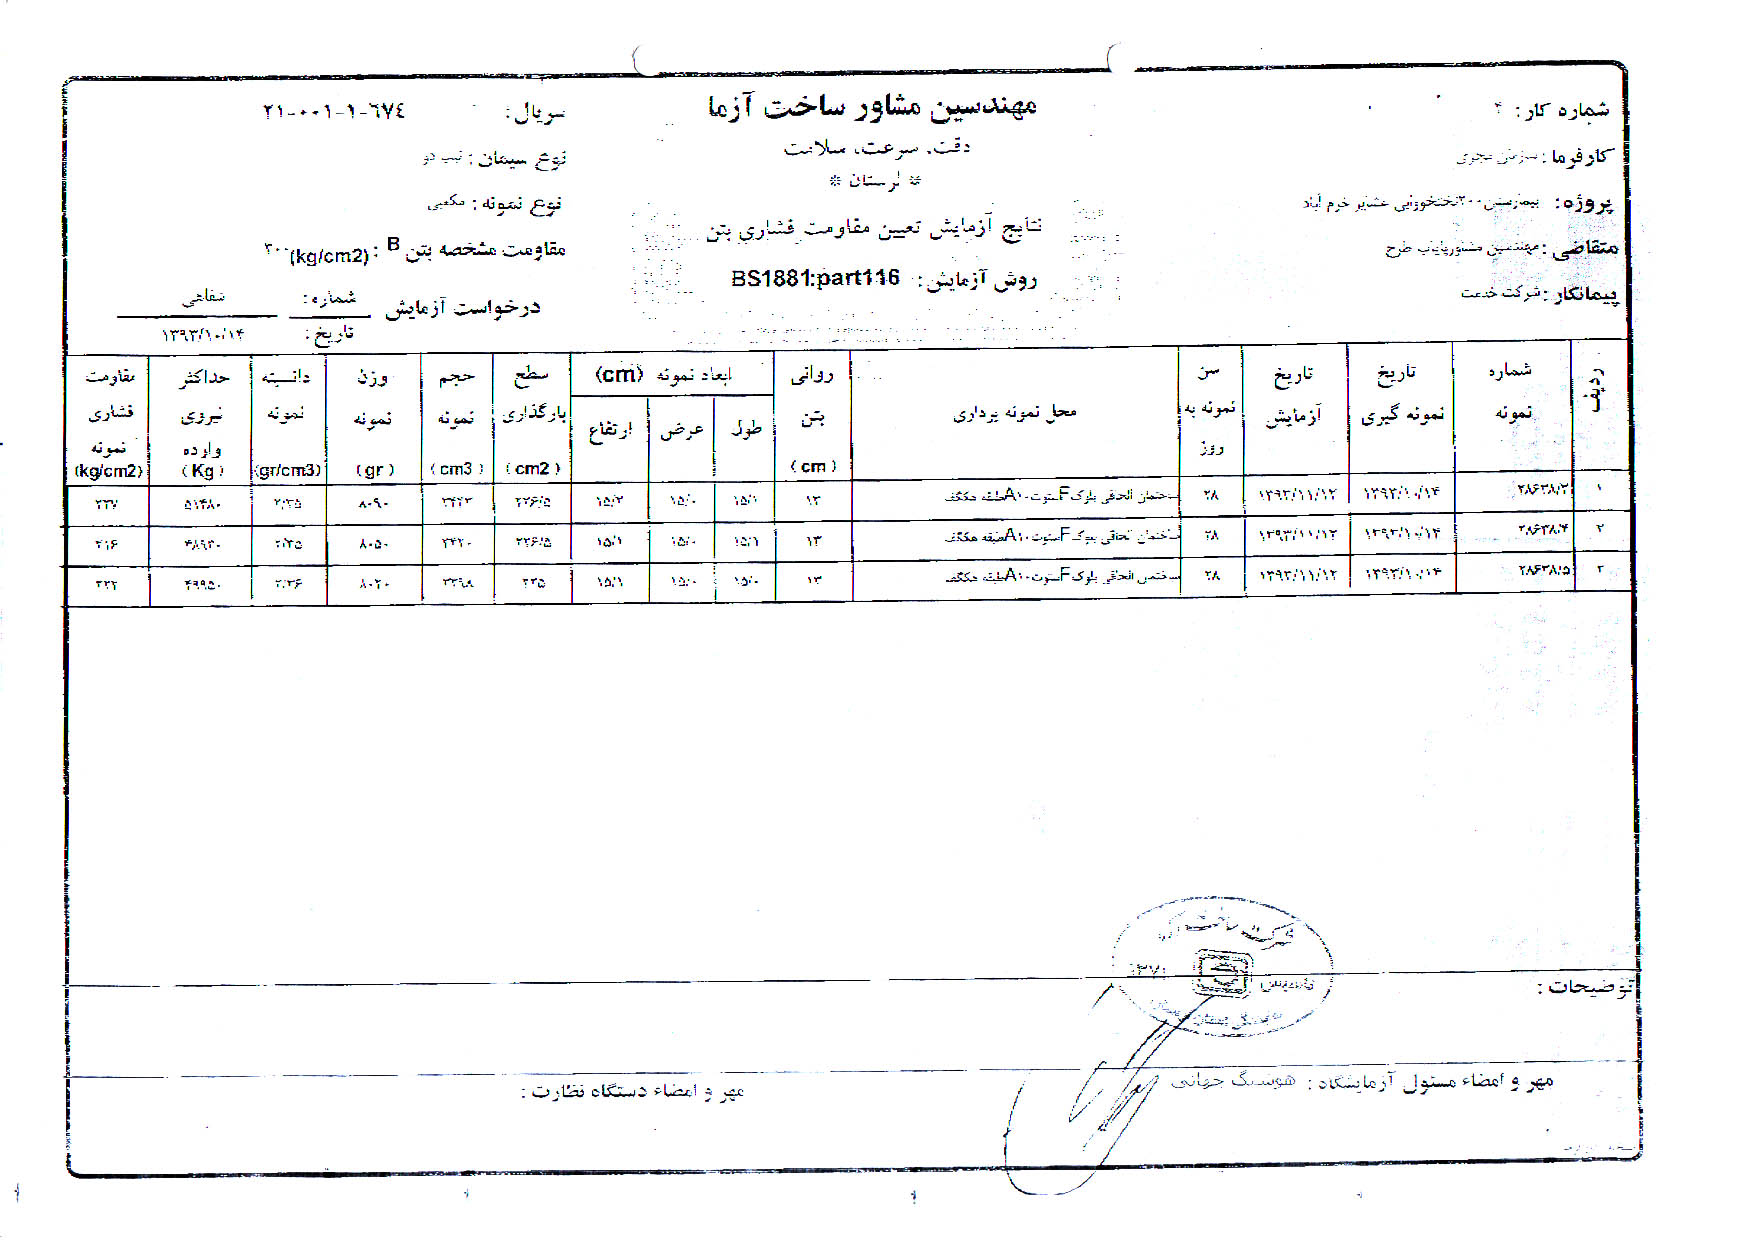 مهندسین مشاور ساخت آزما
دقت، سرعت، سلامت
* لرستان *
نتایج آزمایش تعیین مقاومت فشاری بتن
روش آزمایش: BS1881:part116
شماره کار: ۴
کارفرما: سازمان مجری
پروژه: بیمارستان ۳۰۰تختخوابی عشایر خرم آباد
متقاضی: مهندسین مشاورپایاب طرح
پیمانکار: شرکت خدمت
سریال: ۲۱-۰۰۱-۱-۶۷۴
نوع سیمان: تیپ دو
نوع نمونه: مکعبی
مقاومت مشخصه بتن B: ۳۰۰(kg/cm2)
درخواست آزمایش شماره: شفاهی
تاریخ: ۱۳۹۳/۱۰/۱۴
ردیف | شماره نمونه | تاریخ نمونه گیری | تاریخ آزمایش | سن نمونه به روز | محل نمونه برداری | روانی بتن (cm) | ابعاد نمونه (cm) طول عرض ارتفاع | سطح بارگذاری (cm2) | حجم نمونه (cm3) | وزن نمونه (gr) | دانسیته نمونه (gr/cm3) | حداکثر نیروی وارده (Kg) | مقاومت فشاری نمونه (kg/cm2)
۱ ۲۸۶۳۸/۳ ۱۳۹۳/۱۰/۱۴ ۱۳۹۳/۱۱/۱۲ ۲۸ ساختمان الحاقی بلوک F ستون A۱۰ طبقه همکف ۱۳ ۱۵/۱ ۱۵/۰ ۱۵/۲ ۲۲۶/۵ ۳۴۴۳ ۸۰۹۰ ۲/۳۵ ۵۱۴۸۰ ۲۲۷
۲ ۲۸۶۳۸/۴ ۱۳۹۳/۱۰/۱۴ ۱۳۹۳/۱۱/۱۲ ۲۸ ساختمان الحاقی بلوک F ستون A۱۰ طبقه همکف ۱۳ ۱۵/۱ ۱۵/۰ ۱۵/۱ ۲۲۶/۵ ۳۴۲۰ ۸۰۵۰ ۲/۳۵ ۴۸۹۳۰ ۲۱۶
۳ ۲۸۶۳۸/۵ ۱۳۹۳/۱۰/۱۴ ۱۳۹۳/۱۱/۱۲ ۲۸ ساختمان الحاقی بلوک F ستون A۱۰ طبقه همکف ۱۳ ۱۵/۰ ۱۵/۰ ۱۵/۱ ۲۲۵ ۳۳۹۸ ۸۰۲۰ ۲/۳۶ ۴۹۹۵۰ ۲۲۲
توضیحات:
مهر و امضاء مسئول آزمایشگاه: هوشنگ جهانی
مهر و امضاء دستگاه نظارت: